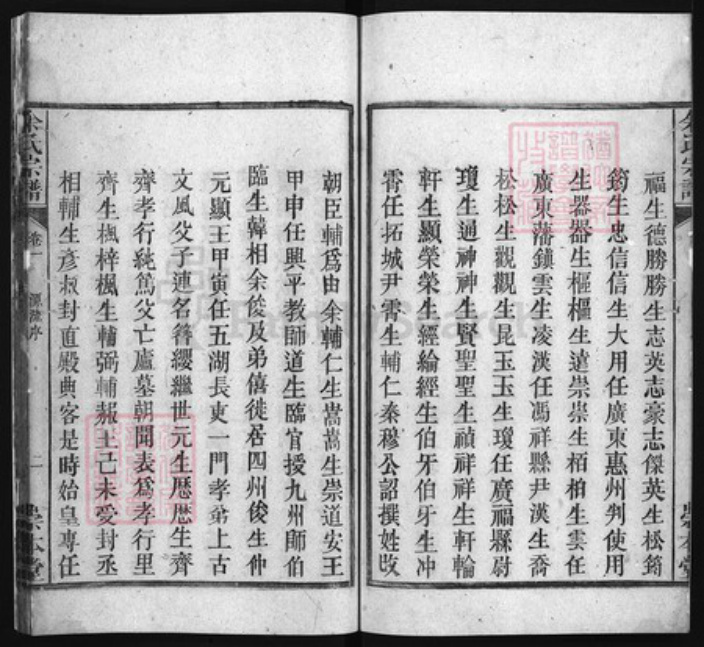 福生德勝勝生志英志豪志傑英生松錡
筠生忠信信生大用任廣東惠州判使用
生器器生樞樞生遠崇崇生栢柏生雲任
廣東藩鎮雲生凌漢任馮祥縣尹漢生喬
松松生觀觀生昆玉玉生瓊任廣福縣尉
瓊生通神神生賢聖聖生禎祥祥生軒輪
軒生顯榮榮生經綸經生伯牙伯牙生冲
霄任拓城尹霄生輔仁秦穆公詔撰姓改
余氏宗譜
卷一
源流序
二
朝臣輔爲由余輔仁生嵩嵩生崇道安王
甲申任興平教師道生臨官授九州師伯
臨生韓相余俊及弟僖徙居四州俊生仲
元顯王甲寅任五湖長吏一門孝弟上古
文風父子連名簪纓繼世元生厯厯生齊
齊孝行純篤父亡廬墓朝聞表爲孝行里
齊生楓梓楓生輔弼輔報王己未受封丞
相輔生彦叔封直殿典客是時始皇專任
FamilySearch